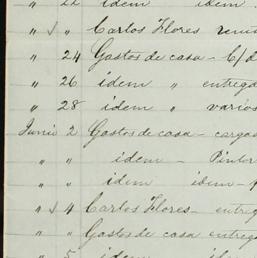 " 22 idem idem
" " Carlos Flores
" 24 Gastos de casa -
" 26 idem " entrega
" 28 idem " varios
Junio 2 Gastos de casa - cargas
" " idem - Pintor
" " idem idem -
" 4 Carlos Flores - entreg
" " Gastos de casa entreg
" 5 idem